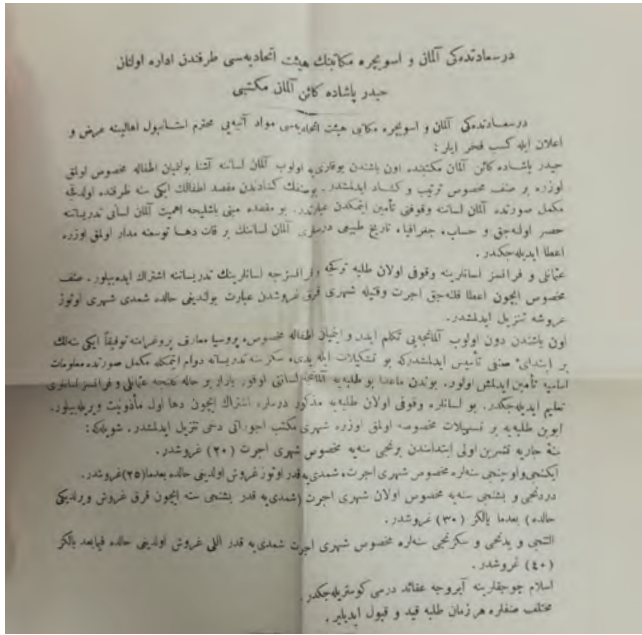 درسعادتده‌كی آلمان و اسویچره مكاتبنك هیئت اتحادیه‌سی طرفندن اداره اولنان
حیدر پاشاده كائن آلمان مكتبی
درسعادتده‌كی آلمان و اسویچره مكاتبی هیئت اتحادیه‌سی مواد آتیه‌یی محترم استانبول اهالیسنه عرض و
اعلان ایله كسب فخر ایلر :
حیدر پاشاده كائن آلمان مكتبنده اون یاشندن یوقاری‌یه اولوب آلمان لساننه آشنا بولنمیان اطفاله مخصوص اولمق
اوزره بر صنف مخصوص ترتیب و كشاد ایدلمشدر. بوصنفك كشادندن مقصد اطفالك ایكی سنه ظرفنده اولدقجه
مكمل صورتده آلمان لساننه وقوفنی تأمین ایتمكدن عبارتدر. بو مقصده مبنی باشلیجه اهمیت آلمان لسانی تدریساتنه
حصر اولنه‌جق و حساب، جغرافیا، تاریخ طبیعی درسلری آلمان لساننك بر قات دها توسعنه مدار اولمق اوزره
اعطا ایدیله‌جكدر.
عثمانلی و فرانسز لسانلرینه وقوفی اولان طلبه تركجه و فرانسزجه لسانلرینك تدریساتنه اشتراك ایده‌بیلور. صنف
مخصوص ایچون اعطا قلنه‌جق اجرت وقتیله شهری قرق غروشدن عبارت بولندیغی حالده شمدی شهری اوتوز
غروشه تنزیل ایدلمشدر.
اون یاشندن دون اولوب آلمانجه‌یی تكلم ایدر و ایتمیان اطفاله مخصوص، پروسیا معارف پروغرامنه توفیقاً ایكی سنه‌لك
بر ابتدائی صنفی تأسیس ایدلمشدركه بو تشكیلات ایله یدی، سكز سنه تدریساته دوام ایتمكله مكمل صورتده معلومات
اساسیه تأمین ایدلمش اولور. بوندن ماعدا بو طلبه‌یه آلمانجه لسانی اوقور یازار بر حاله كلنجه عثمانلی و فرانسز لسانلری
تعلیم ایدیله‌جكدر. بو لسانلره وقوفی اولان طلبه‌یه مذكور درسلره اشتراك ایچون دها اول مأذونیت ویریله‌بیلور.
ابوین طلبه‌یه بر تسهیلات مخصوصه اولمق اوزره شهری مكتب اجوراتی دخی تنزیل ایدلمشدر. شویله‌كه:
سنهٔ جاریه تشرین اولی ابتداسندن برنجی سنه‌یه مخصوص شهری اجرت (٢٠) غروشدر.
ایكنجی واوچنجی سنه‌لره مخصوص شهری اجرت، شمدی‌یه قدر اوتوز غروش اولدیغی حالده بعدما (٢٥) غروشدر.
دردنجی و بشنجی سنه‌یه مخصوص اولان شهری اجرت (شمدی‌یه قدر بشنجی سنه ایچون قرق غروش ویرلدیكی
حالده) بعدما یالكز (٣٠) غروشدر.
التنجی و یدنجی و سكزنجی سنه‌لره مخصوص شهری اجرت شمدی‌یه قدر اللی غروش اولدیغی حالده فیمابعد یالكز
(٤٠) غروشدر.
اسلام چوجقلرینه آیروجه عقائد درسی كوستریله‌جكدر.
مختلف صنفلره هر زمان طلبه قید و قبول ایدیلیر.